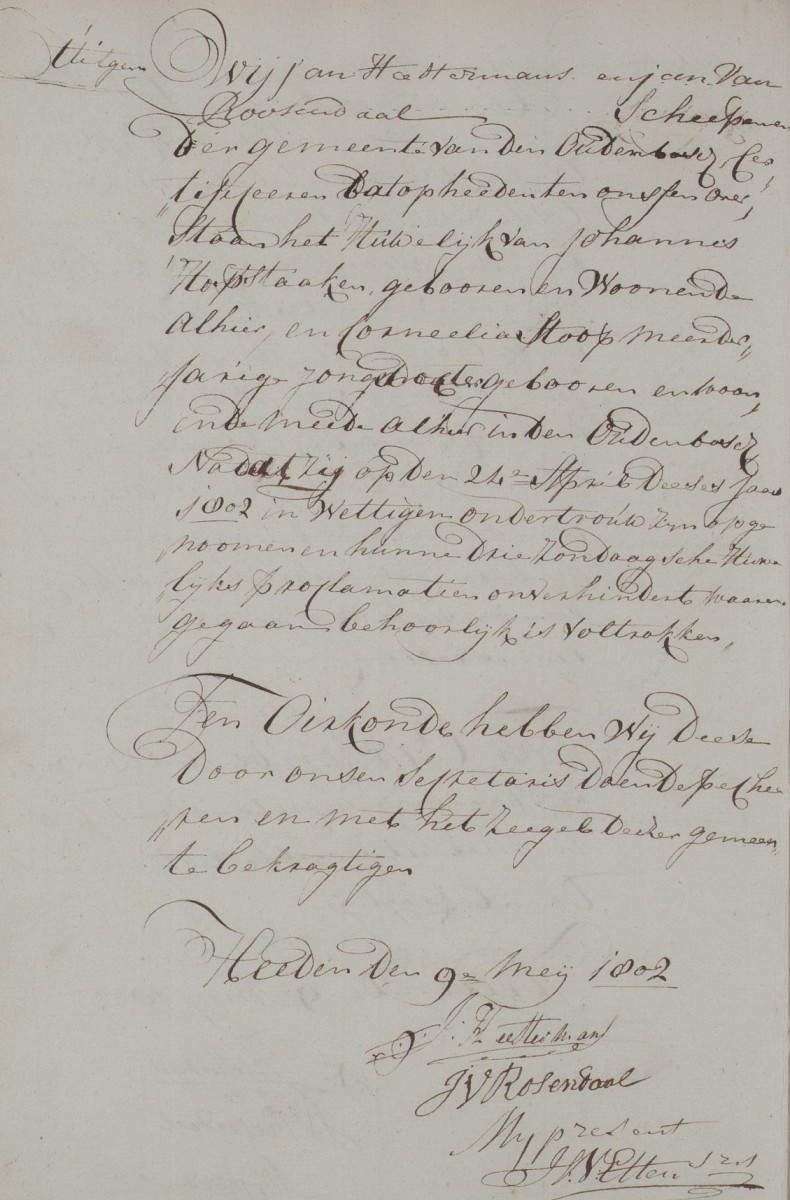 Uitgem
Wij Jan Heestermans en Jan Van
Roosendaal Scheepenen
Der gemeente van den Oudenbosch, Cer,
„tificeeren Dat op heeden ten onssen over,
Staan het Huwelijk van Johannes
Hopstaaken, gebooren en Woonende
Alhier, en Corneelia Stoop meerder„
Jarige Jongedogter gebooren en woon,
ende meede alhier in den Oudenbosch
Na dat zij op den 24e April Deeses Jaars
1802 in Wettigen ondertrouw zijn opge
noomen en hunne Drie Zondaagsche Huwe
„lyks proclamatien onverhindert waaren
gegaan behoorlyk is voltrokken,
Ten Oirkonde hebben Wij Deese
Door onsen Secretaris Doen Depeschee
„ren en met het Zeegel Deezer gemeen„
te bekragtigen
Heeden Den 9e Meij 1802
J: Heesterman
J V Rosendaal
My present
V: Etten srs